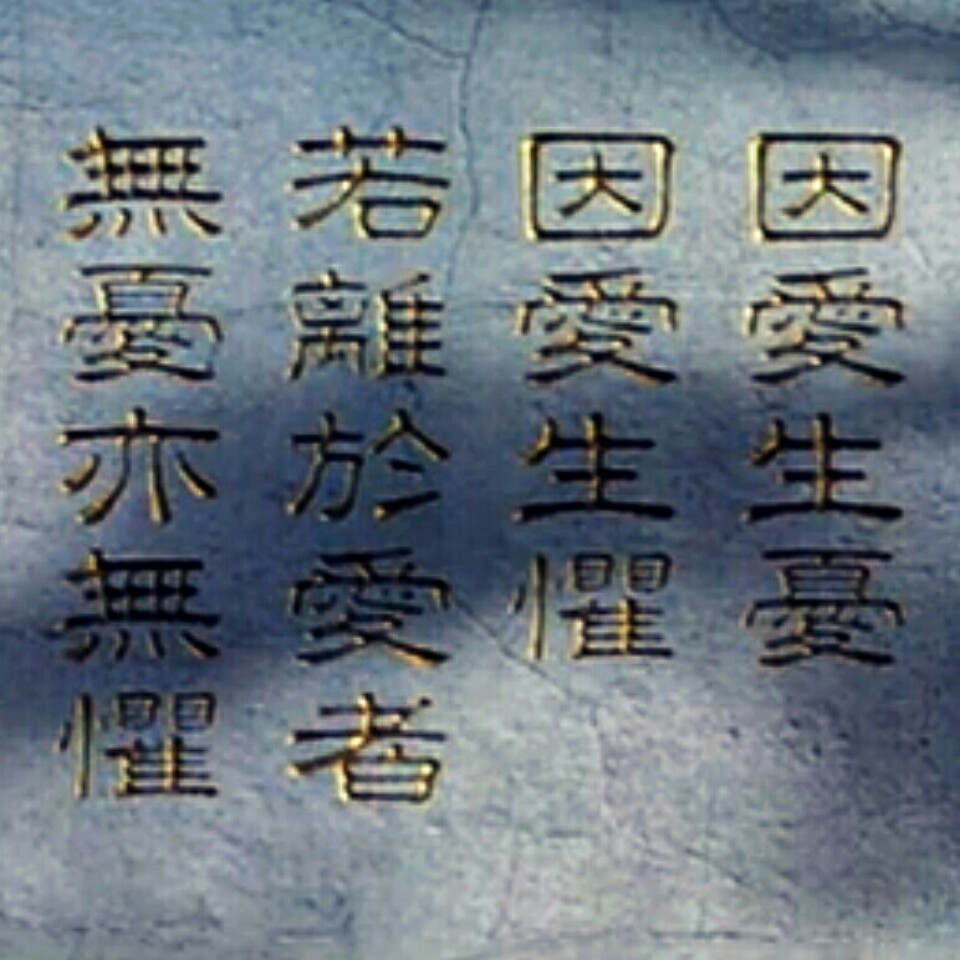 因愛生憂
因愛生懼
若離於愛者
無憂亦無懼